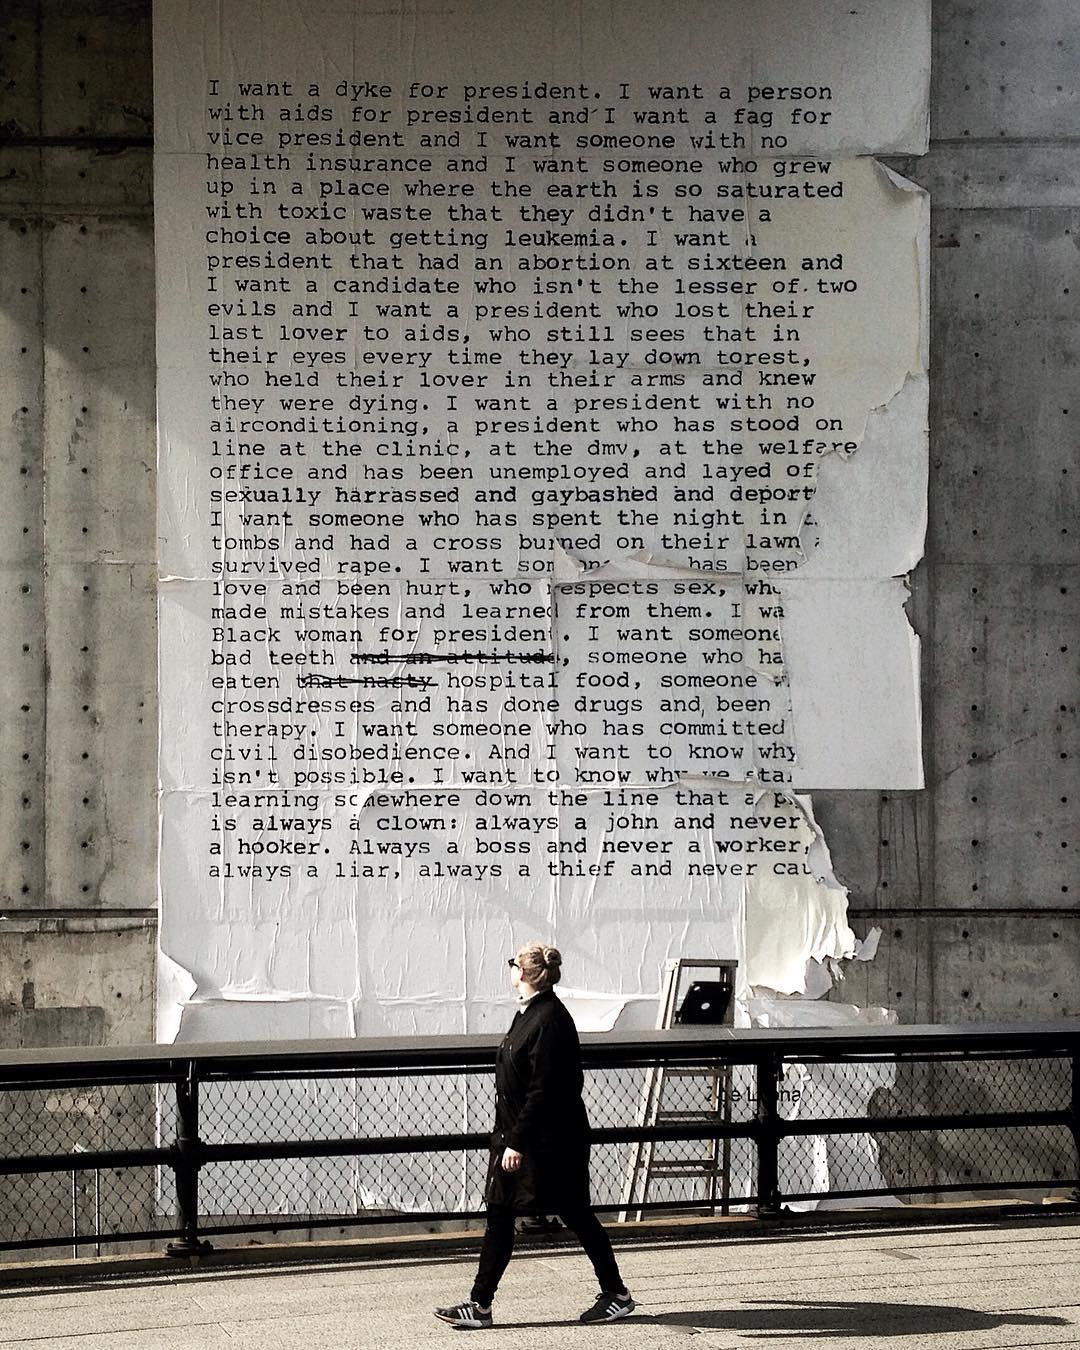 I want a dyke for president. I want a person
with aids for president and I want a fag for
vice president and I want someone with no
health insurance and I want someone who grew
up in a place where the earth is so saturated
with toxic waste that they didn't have a
choice about getting leukemia. I want a
president that had an abortion at sixteen and
I want a candidate who isn't the lesser of two
evils and I want a president who lost their
last lover to aids, who still sees that in
their eyes every time they lay down torest,
who held their lover in their arms and knew
they were dying. I want a president with no
airconditioning, a president who has stood on
line at the clinic, at the dmv, at the welfare
office and has been unemployed and layed of
sexually harrassed and gaybashed and deport
I want someone who has spent the night in
tombs and had a cross burned on their lawn
survived rape. I want has been
love and been hurt, who respects sex, who
made mistakes and learned from them. I wa
Black woman for president. I want someone
bad teeth and an attitude, someone who ha
eaten that nasty hospital food, someone
crossdresses and has done drugs and been
therapy. I want someone who has committed
civil disobedience. And I want to know why
isn't possible. I want to know why we sta
learning somewhere down the line that a
is always a clown: always a john and never
a hooker. Always a boss and never a worker,
always a liar, always a thief and never cau